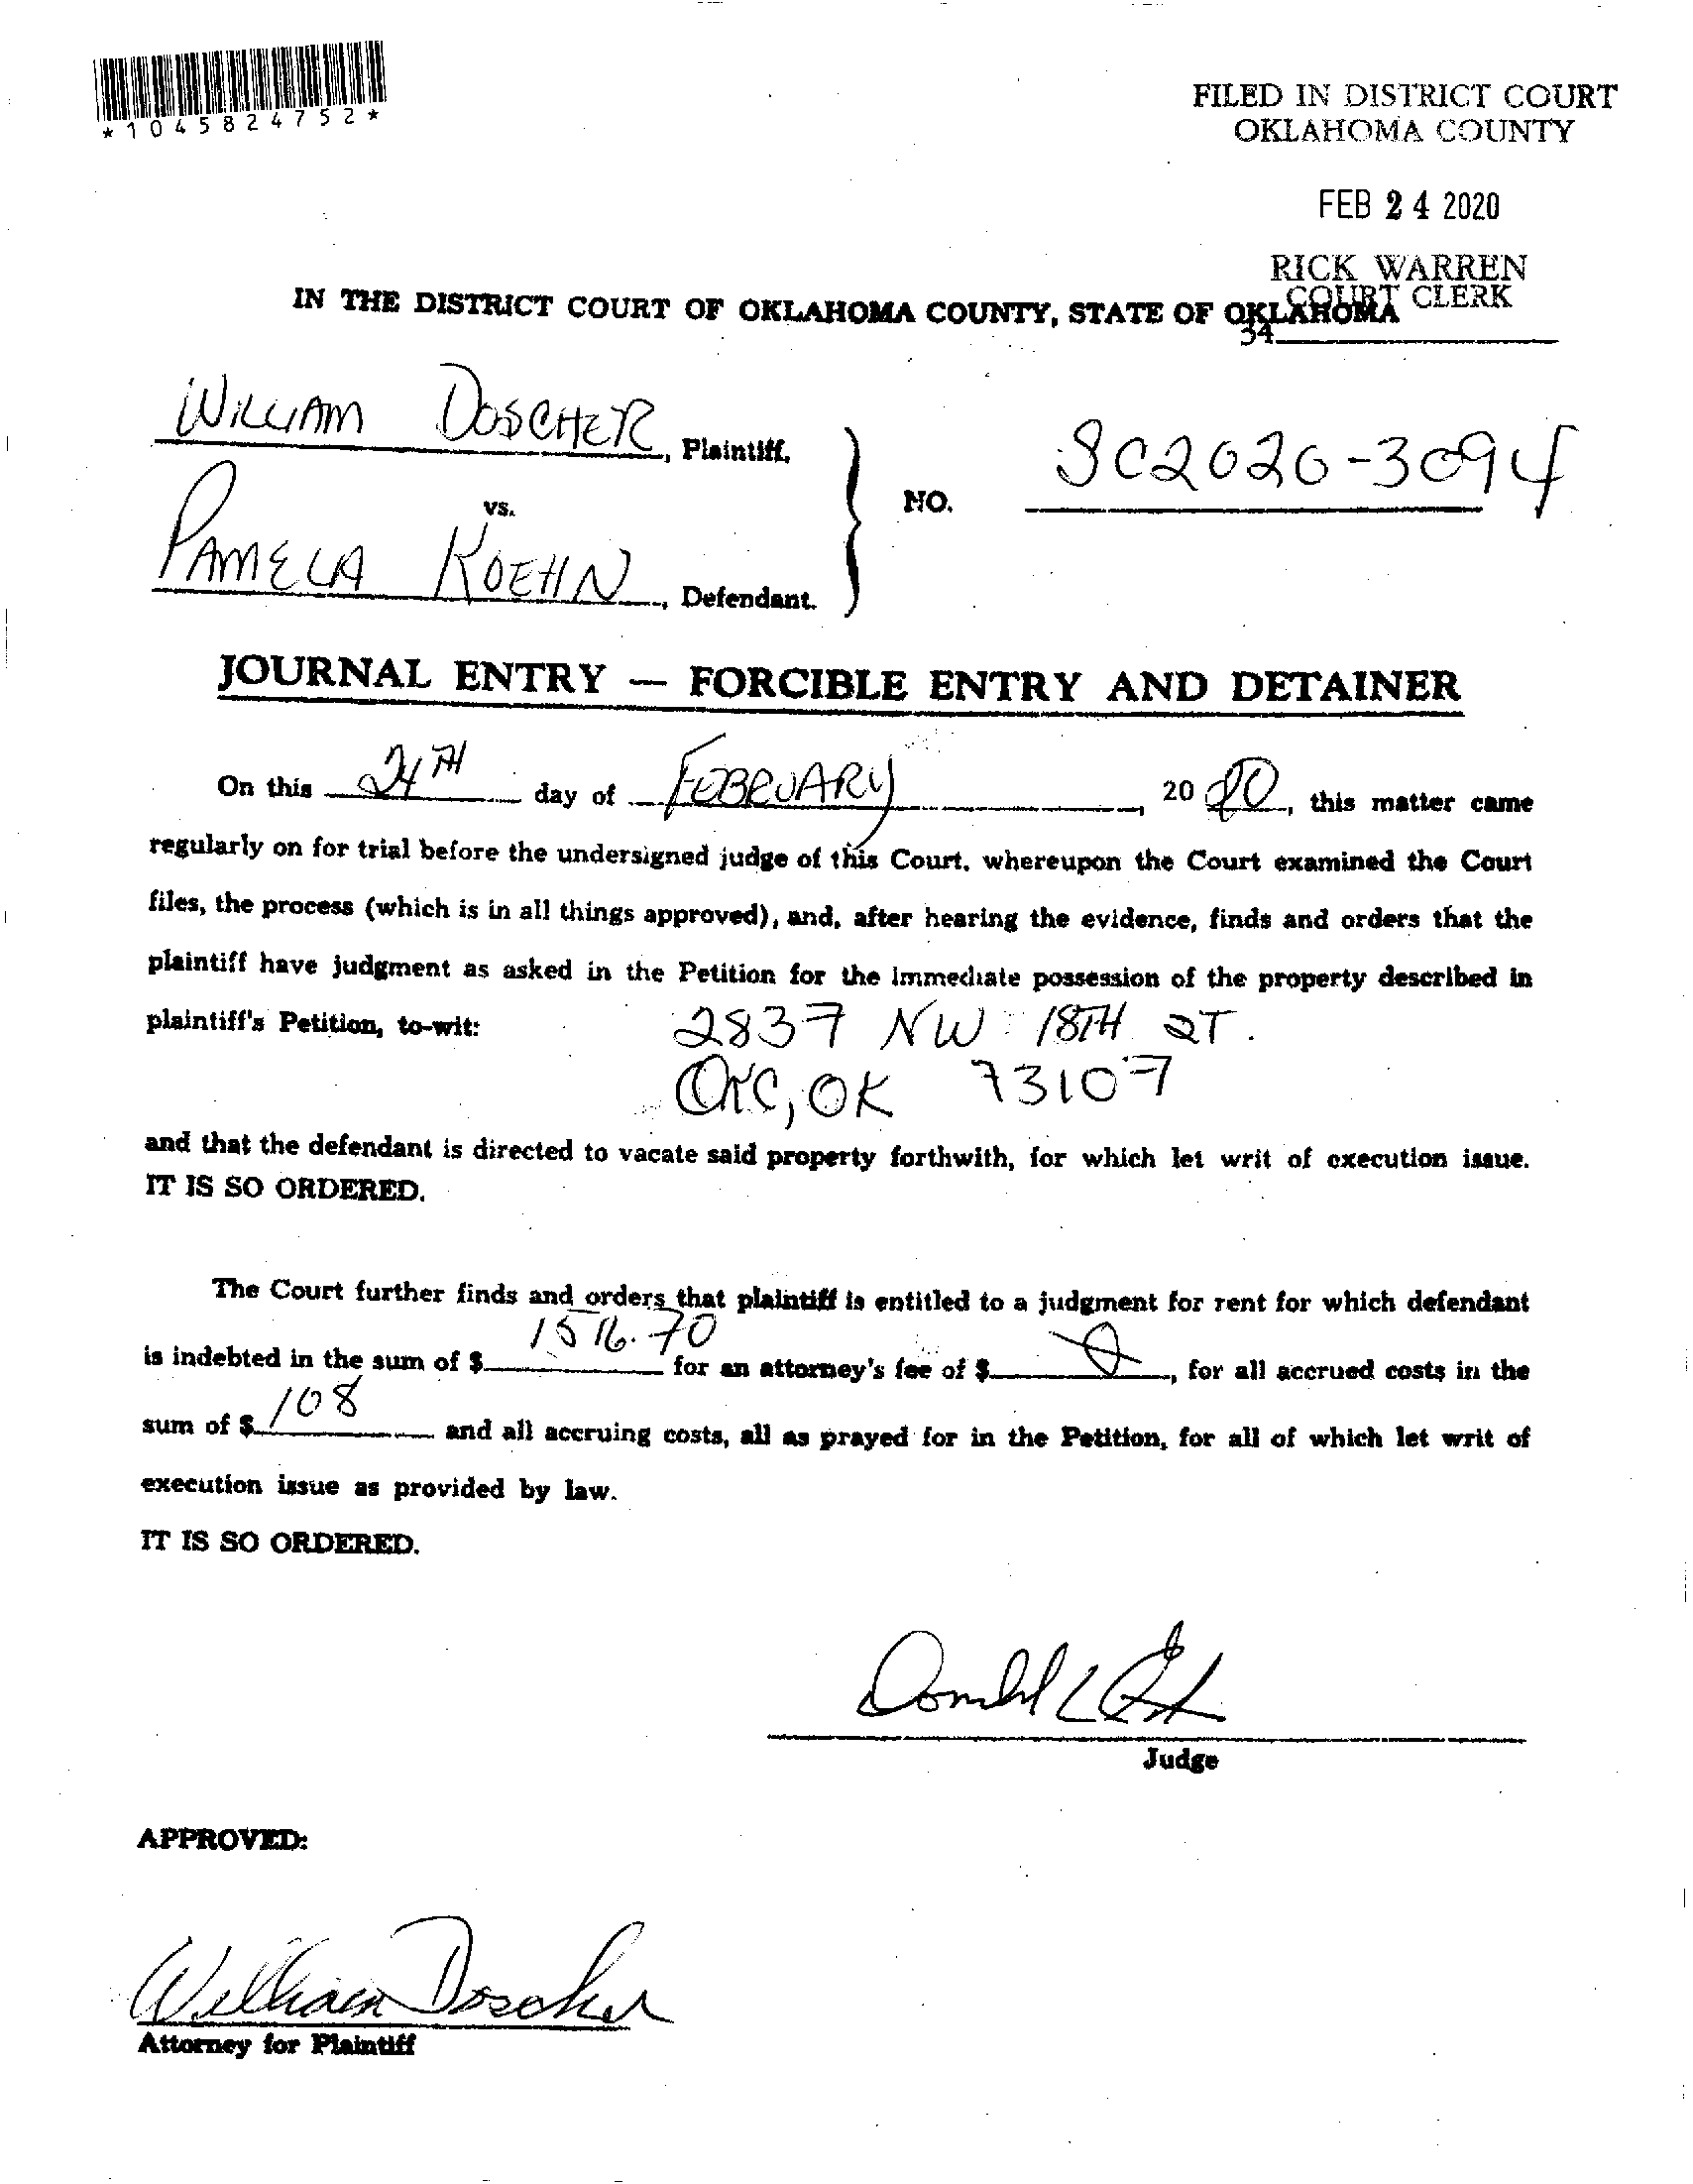 *1045824752*
FILED IN DISTRICT COURT
OKLAHOMA COUNTY
FEB 24 2020
RICK WARREN
COURT CLERK
34
IN THE DISTRICT COURT OF OKLAHOMA COUNTY, STATE OF OKLAHOMA
WILLIAM DOSCHER, Plaintiff,
vs.
NO. SC2020-3094
PAMELA KOEHN, Defendant.
JOURNAL ENTRY — FORCIBLE ENTRY AND DETAINER
On this 24TH day of FEBRUARY, 2020, this matter came
regularly on for trial before the undersigned judge of this Court, whereupon the Court examined the Court
files, the process (which is in all things approved), and, after hearing the evidence, finds and orders that the
plaintiff have judgment as asked in the Petition for the immediate possession of the property described in
plaintiff's Petition, to-wit: 2837 NW 18TH ST.
OKC, OK 73107
and that the defendant is directed to vacate said property forthwith, for which let writ of execution issue.
IT IS SO ORDERED.
The Court further finds and orders that plaintiff is entitled to a judgment for rent for which defendant
is indebted in the sum of $ 1516.70 for an attorney's fee of $ , for all accrued costs in the
sum of $ 108 and all accruing costs, all as prayed for in the Petition, for all of which let writ of
execution issue as provided by law.
IT IS SO ORDERED.
Judge
APPROVED:
William Doscher
Attorney for Plaintiff